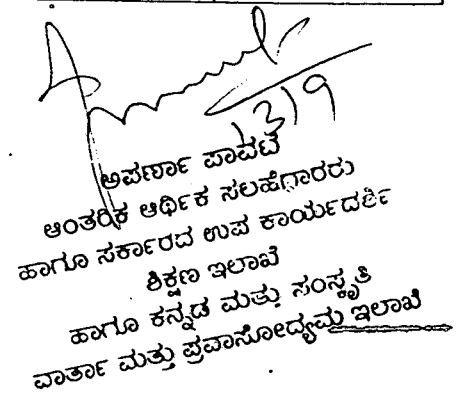 13/9
ಅಪರ್ಣಾ ಪಾವಟೆ
ಆಂತರಿಕ ಆರ್ಥಿಕ ಸಲಹೆಗಾರರು
ಹಾಗೂ ಸರ್ಕಾರದ ಉಪ ಕಾರ್ಯದರ್ಶಿ
ಶಿಕ್ಷಣ ಇಲಾಖೆ
ಹಾಗೂ ಕನ್ನಡ ಮತ್ತು ಸಂಸ್ಕೃತಿ
ವಾರ್ತಾ ಮತ್ತು ಪ್ರವಾಸೋದ್ಯಮ ಇಲಾಖೆ